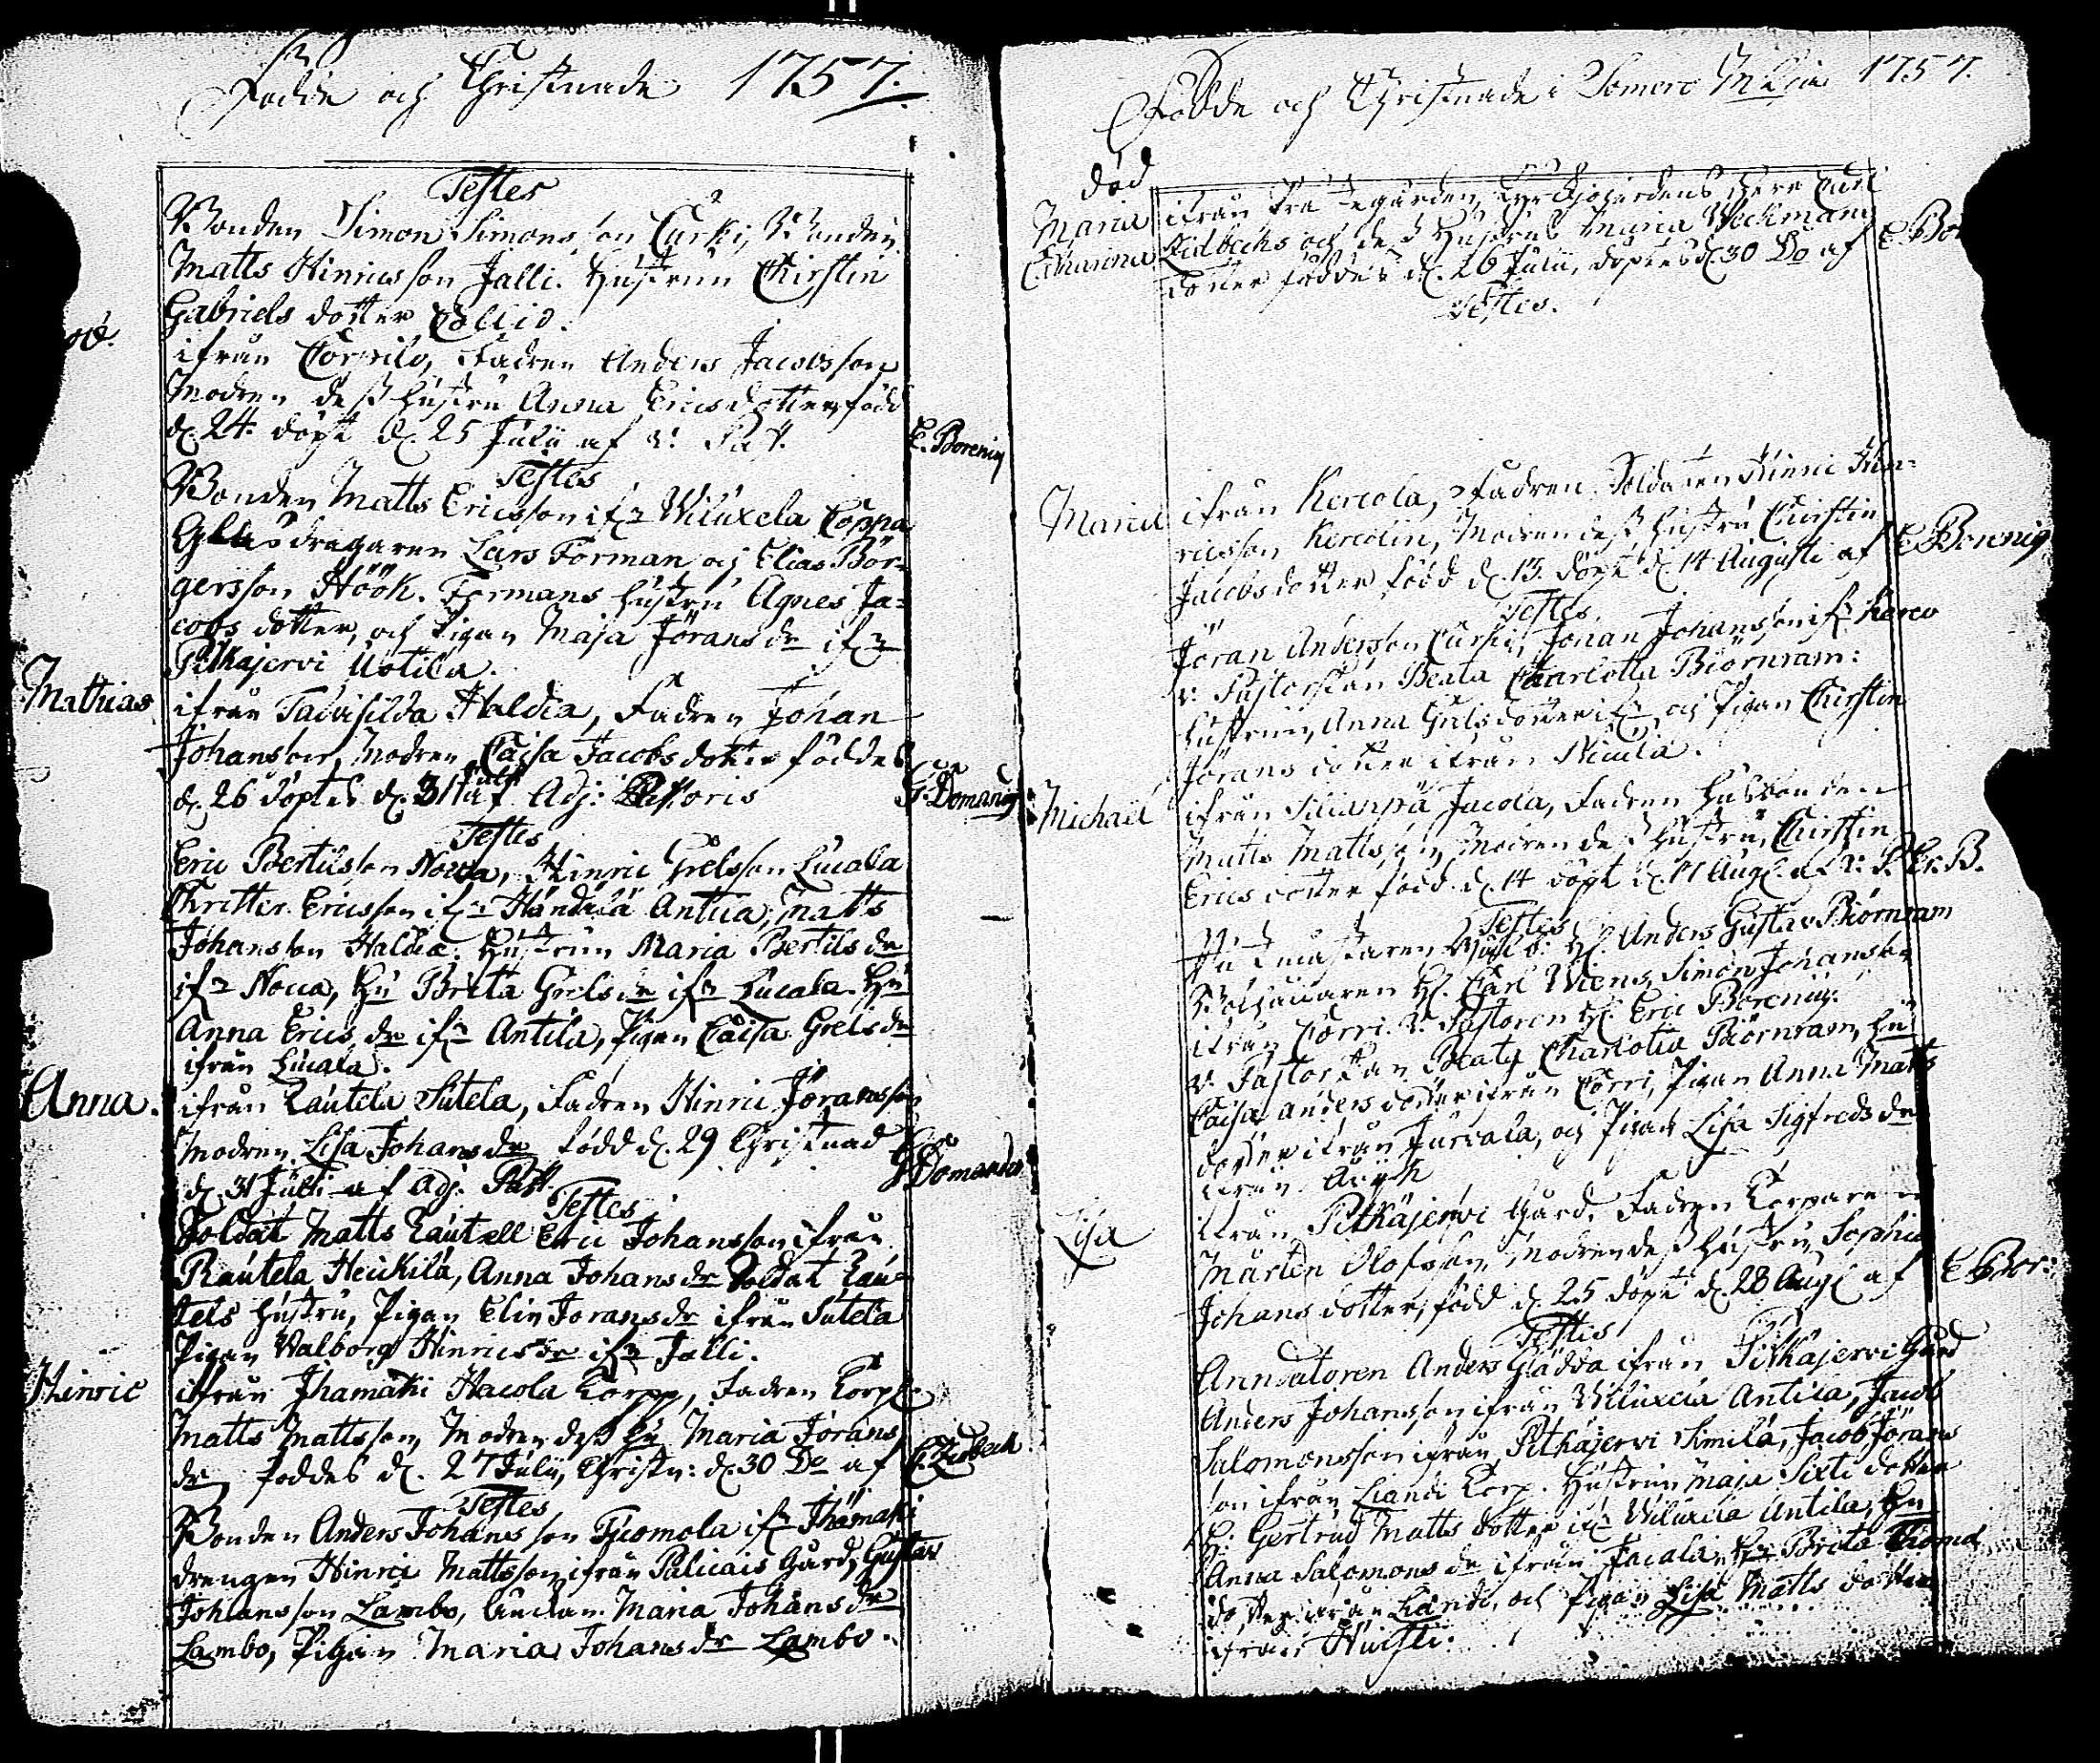 Födde och Christnade 1757.
Testes
Bonden Simon Simonsson Curki, Bonden
Matts Hinricsson Jalli. Hustrun Chirstin
Gabriels dotter
ifrån Fadren Anders Jacobsson
Modren dess hustru Anna Erics dotter, född
d. 24. döpt d. 25 Julii af v. Past.
E. Borenius
Testes
Bonden Matts Ericsson ifr. Wiluxela
Lars Forman och Elias Bör-
gersson Höök. Formans hustru Agnes Ja-
cobs dotter, och Pigan Maja Jörans dr ifr
Pitkäjervi Uotila.
Mathias
ifrån Haldia, Fadren Johan
Johansson, Modren Caisa Jacobs dotter föddes
d. 26 döptes d. 31 Julii af Adj: Pastoris
G. Domander
Testes
Eric Bertilsson Nocca, Hinric Grelsson Lucala
Ericsson ifr Händälä Antila, Matts
Johansson Haldia. Hustrun Maria Bertils dr
ifr Nocca, Hu Brita Grels dr ifr Lucala. Hu
Anna Erics dr ifr Antila, Pigan Caisa Grels dr
ifrån Lucala.
Anna.
ifrån Rautela Sutela, Fadren Hinric Jöransson
Modren Lisa Johans dr född d. 29 Christnad
d. 31 Julii af Adj. Past.
G. Domander
Testes
Soldat Matts Rautell Eric Johansson ifrån
Rautela Heickilä, Anna Johans dr Soldat Rau-
tels hustru, Pigan Elin Jorans dr ifrån Sutela
Pigan Walborg Hinrics dr ifr Jalli.
Hinric
ifrån Jhamäki Hacola Torpp, Fadren Torp.
Matts Mattsson, Modren dess Hu Maria Jörans
dr, föddes d. 27 Julii, Christn: d. 30 Do af
C. Lidbeck
Testes
Bonden Anders Johansson Tuomola ifr Jhämäki
drengen Hinric Mattsson ifrån Palicais Gård, Gustav
Johansson Lambo, Maria Johans dr
Lambo, Pigan Maria Johans dr Lambo.
Födde och Christnade i Somero 1757.
död
Maria
Catharina
ifrån Herr Carl
Lidbecks och dess Hustrus Maria Weckmans
dotter föddes d. 26 Julii, döptes d. 30 Do af
E. Bor
Testes.
Maria
ifrån Kercola, Fadren Soldaten Hinric Hin-
ricsson Kercolin, Modren dess hustru Chirstin
Jacobs dotter född d. 13. döpt d. 14 Augusti af
E. Borenius
Testes.
Jöran Andersson Curki, Johan Johansson ifr
v. Pastorskan Beata Charlotta Biörnram:
hustrun Anna Grels dotter ifr och Pigan Chirstin
Jörans dotter ifrån
Michaël
ifrån Silianpä Jacola, Fadren
Matts Mattsson, Modren dess hustru Chirstin
Erics dotter född d. 14 döpt d. Aug. af v. P. Er. B.
Testes
H. Anders Gustav Biörnram
H. Carl Wiens, Simon Johansson
ifrån Corri. V. Pastoren H. Eric Borenius
v. Pastorskan Beata Charlotta Biörnram, Hu
Caisa Anders dotter ifrån Corri, Pigan Anna Matts
dotter ifrån Jursala, och Pigan Lisa Sigfreds dr
ifrån
Lisa
ifrån Pitkäjervi Gård, Fadren Torparen
Mårten Olofsson, Modren dess hustru Sophia
Johans dotter, född d. 25 döpt d. 28 Aug. af
E. Bor:
Testes
Anders Glädda ifrån Pitkäjervi Gård
Anders Johansson ifrån Wiluxela Antila, Jacob
Salomonsson ifrån Pitkäjervi Simila, Jacob Jörans
son ifrån Liandi Torp. Hustrun Maja Sixti dotter
H. Gertrud Matts dotter ifr Wiluxela Antila, Hu
Anna Salomons dr ifrån Jacala, Hu Brita
dotter ifrån Liandi, och Pigan Lisa Matts dotter
ifrån